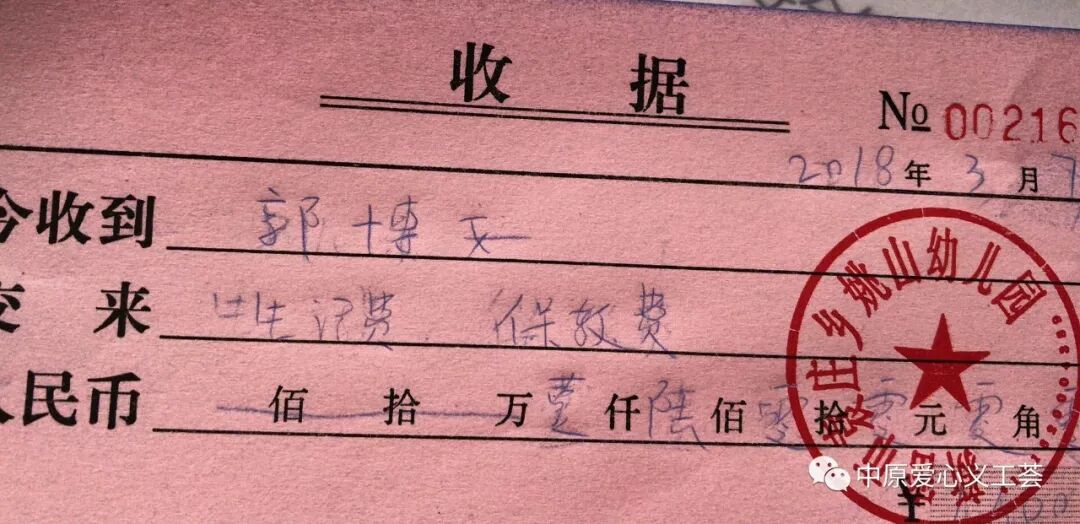 收据
№ 00216
2018年3月7
今收到 郭博文
交来 生活费、保教费
人民币 佰 拾 万 壹 仟 陆 佰 零 拾 零 元 零 角
庄乡姚山幼儿园
¥
中原爱心义工荟